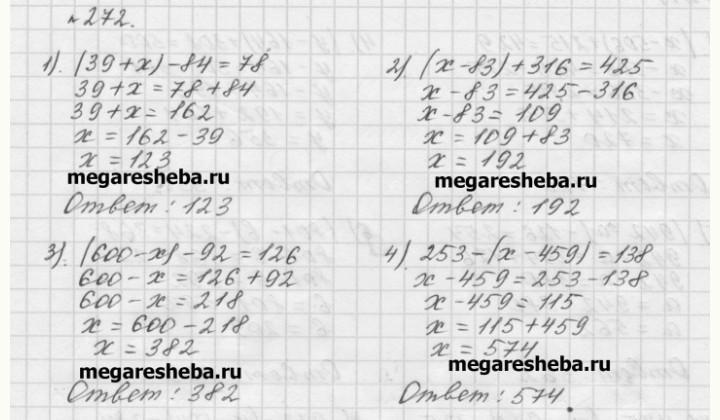 №272.
1). (39+x)-84=78
39+x=78+84
39+x=162
x=162-39
x=123
megaresheba.ru
Ответ: 123
2). (x-83)+316=425
x-83=425-316
x-83=109
x=109+83
x=192
megaresheba.ru
Ответ: 192
3). (600-x)-92=126
600-x=126+92
600-x=218
x=600-218
x=382
megaresheba.ru
Ответ: 382
4). 253-(x-459)=138
x-459=253-138
x-459=115
x=115+459
x=574
megaresheba.ru
Ответ: 574.